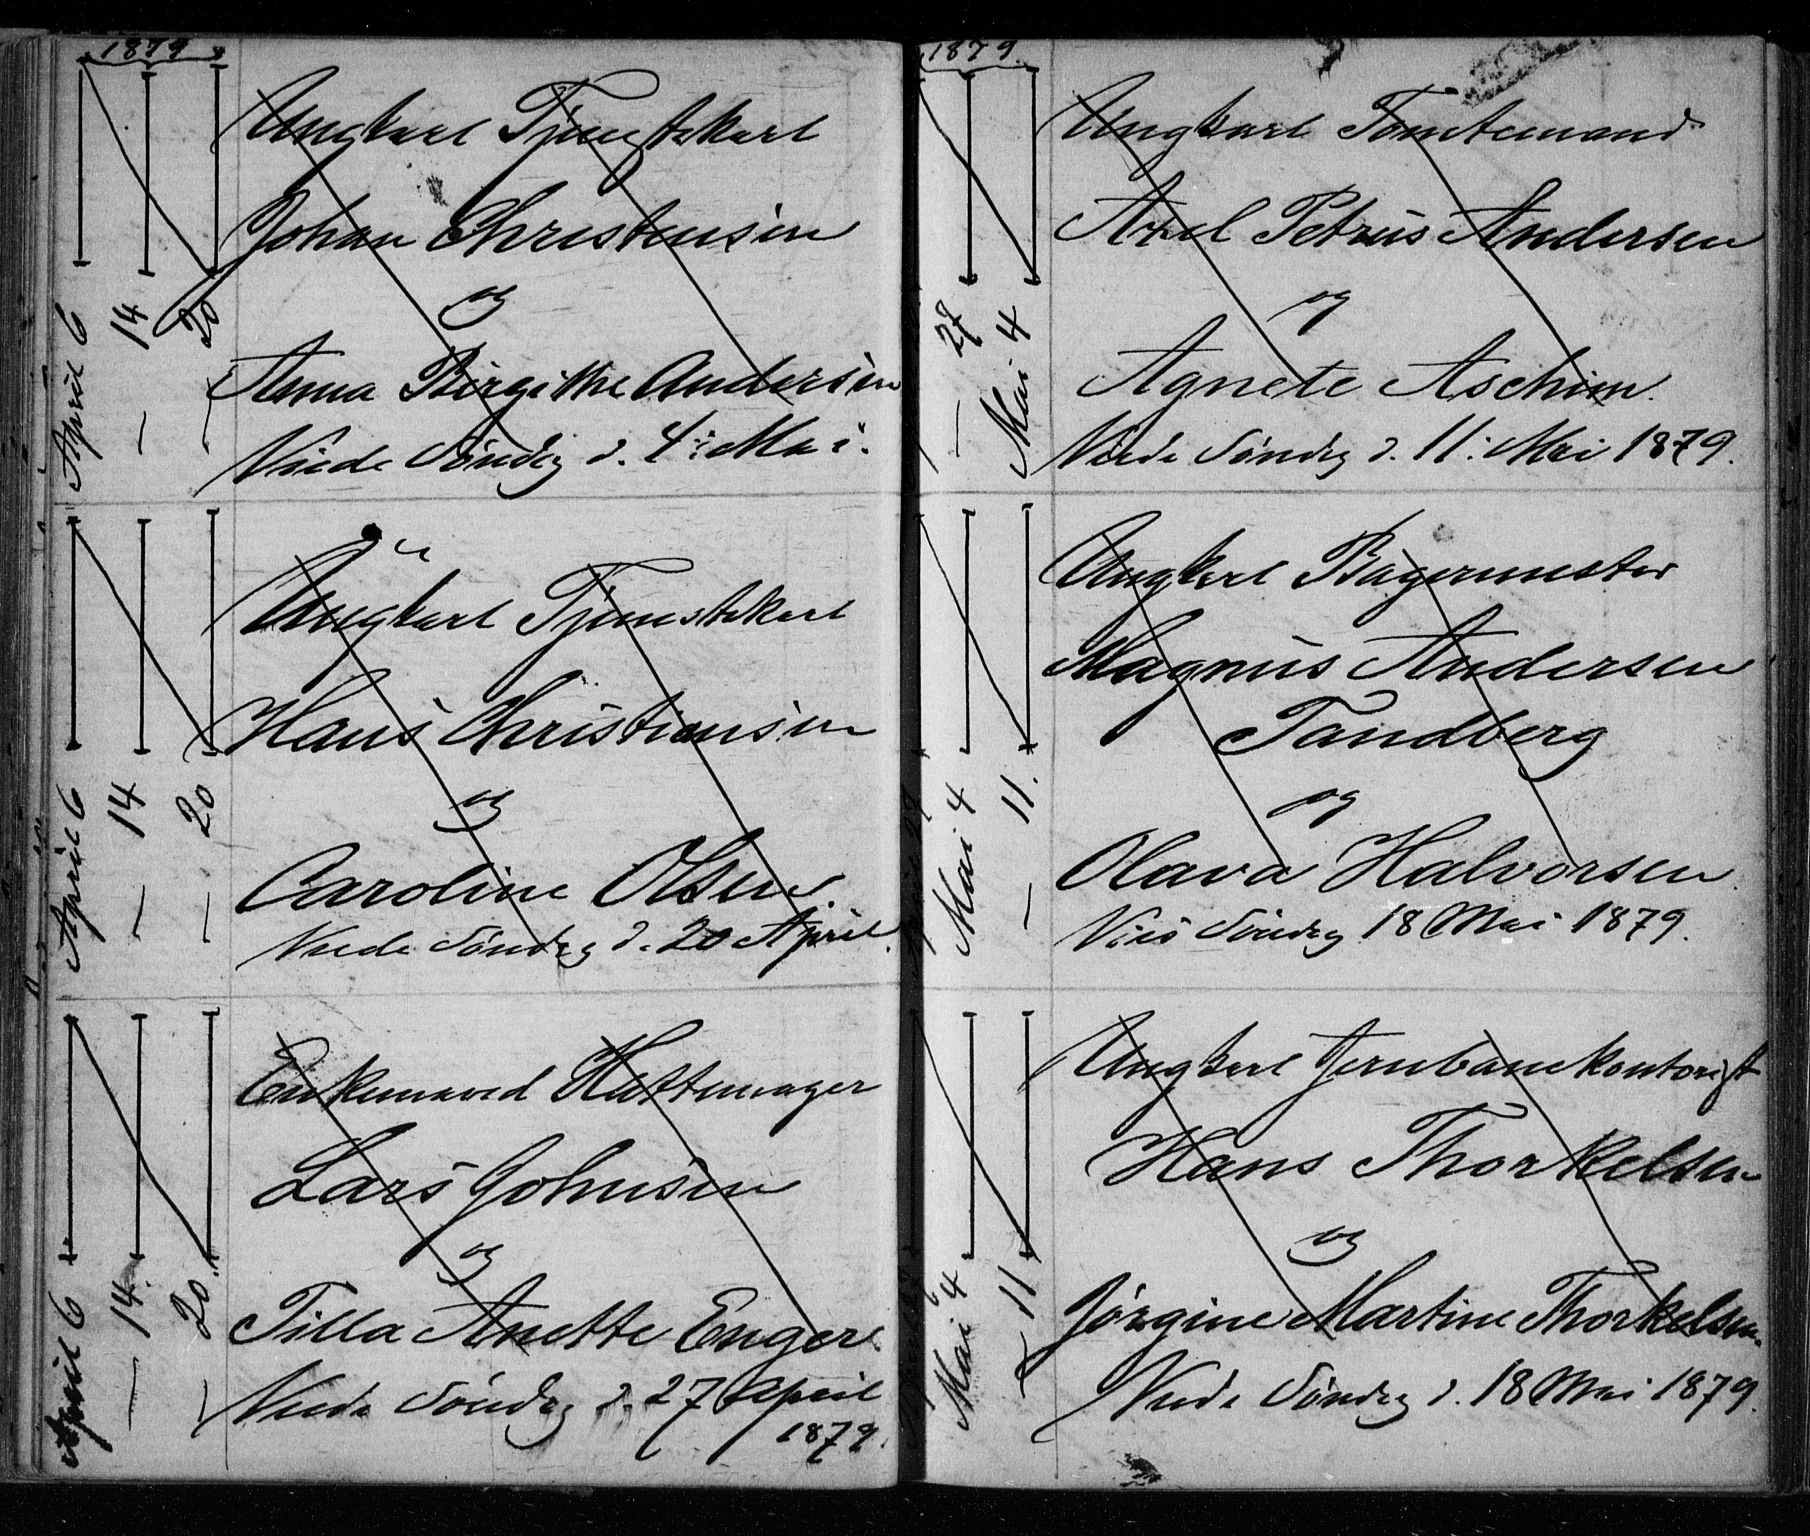 1879
April 6
— 14
— 20
Ungkarl Tjenestekarl
Johan Christensen
og
Anna Birgithe Andersen
Viede Søndag d. 4: Mai.
April 6
— 14
— 20
Ungkarl Tjenestekarl
Hans Christiansen
og
Caroline Olsen.
Viede Søndag d. 20 April.
April 6
— 14.
— 20.
Enkemand Hattemager
Lars Johnsen
og
Tilla Anette Enger.
Viede Søndag d. 27 April
1879.
1879.
— 27
Mai 4
Ungkarl Tomtemand
Axel Petrus Andersen
og
Agnete Aschim.
Viede Søndag d. 11. Mai 1879.
Mai 4
— 11.
Ungkarl Bagermester
Magnus Andersen
Tandberg
og
Olava Halvorsen.
Vies Søndag 18 Mai 1879.
Mai 4
— 11
Ungkarl Jernbanekontorist
Hans Thorkelsen
og
Jørgine Martine Thorkelsen.
Viede Søndag d. 18 Mai 1879.